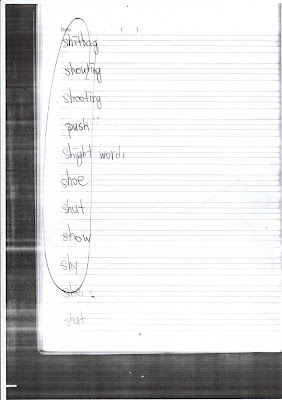 Date ( )
shitbag
shouting
shooting
push
shight words
shoe
shut
show
shy
she